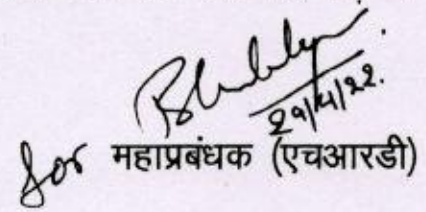 29/4/22.
for महाप्रबंधक (एचआरडी)